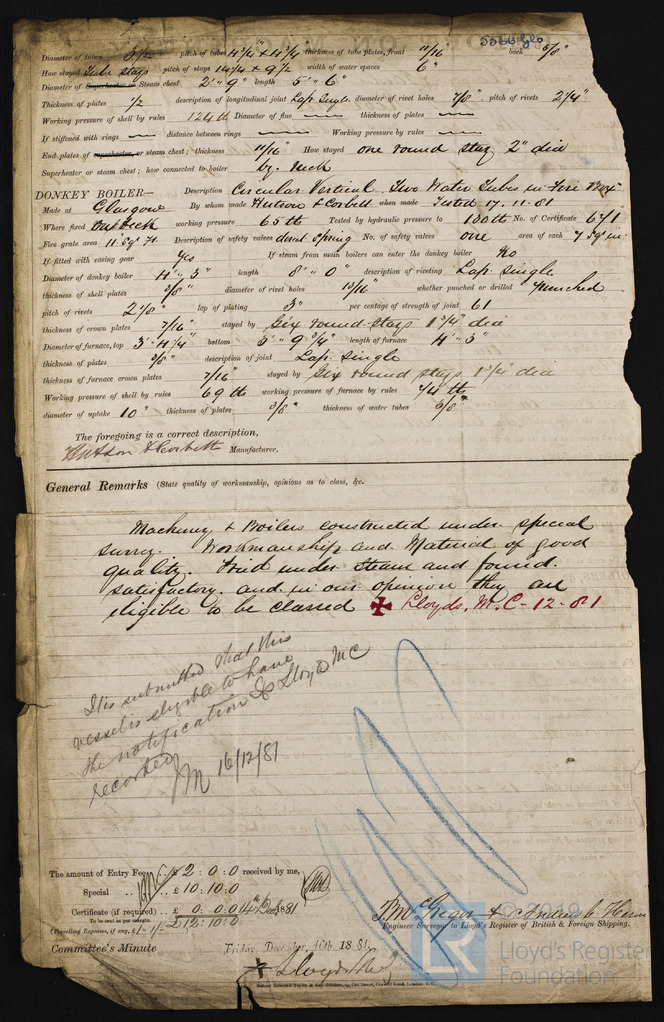 5566 Glo
Diameter of tubes 3 1/2 pitch of tubes 4 3/4" + 4 3/4" thickness of tube plates, front 11/16 back 5/8"
How stayed Tube stays pitch of stays 14 1/4 + 9 1/2 width of water spaces 6"
Diameter of Superheater or Steam chest 2' 9" length 5' 6"
Thickness of plates 1/2 description of longitudinal joint Lap Single diameter of rivet holes 7/8" pitch of rivets 2 1/4"
Working pressure of shell by rules 124 lb Diameter of flue — thickness of plates —
If stiffened with rings — distance between rings — Working pressure by rules —
End plates of superheater, or steam chest; thickness 11/16" How stayed one round stay 2" dia
Superheater or steam chest; how connected to boiler by Neck
DONKEY BOILER— Description Circular Vertical. Two Water Tubes in Fire Box
Made at Glasgow By whom made Hutson & Corbett when made Tested 17.11.81
Where fixed On Deck working pressure 65 lb Tested by hydraulic pressure to 130 lb No. of Certificate 671
Fire grate area 11 sq ft Description of safety valves direct spring No. of safety valves one area of each 7 sq in
If fitted with easing gear Yes If steam from main boilers can enter the donkey boiler No
Diameter of donkey boiler 4' 3" length 8' 0" description of riveting Lap Single
thickness of shell plates 3/8" diameter of rivet holes 13/16" whether punched or drilled Punched
pitch of rivets 2 1/8" lap of plating 3" per centage of strength of joint 61
thickness of crown plates 7/16" stayed by Six round stays 1 3/4" dia
Diameter of furnace, top 3' 4 1/4" bottom 3' 9 3/4" length of furnace 4' 3"
thickness of plates 3/8" description of joint Lap Single
thickness of furnace crown plates 7/16" stayed by Six round stays 1 3/4 dia
Working pressure of shell by rules 69 lb working pressure of furnace by rules 74 lb
diameter of uptake 10" thickness of plates 3/8" thickness of water tubes 3/8"
The foregoing is a correct description,
Hutson & Corbett Manufacturer.
General Remarks (State quality of workmanship, opinions as to class, &c.
Machinery & Boilers constructed under special
survey. Workmanship and Material of good
quality. Tried under steam and found
satisfactory. and in our opinion they are
eligible to be classed ✠ Lloyds. M.C- 12-81
It is submitted that this
vessel is eligible to have
the notification ✠ Lloyds MC
recorded
JM 16/12/81
The amount of Entry Fee .. £ 2 : 0 : 0 received by me,
Special .. .. £ 10 : 10 : 0
Certificate (if required) .. £ 0 : 0 : 0 14th Decr 1881
To be sent as per margin.
(Travelling Expenses, if any, £ £12 : 10 : 0
Jno McGregor +
Engineer Surveyor to Lloyd's Register of British & Foreign Shipping.
Committee's Minute Friday, December, 16th 1881.
✠ Lloyds M.C.
© 2019
LR Lloyd's Register
Foundation